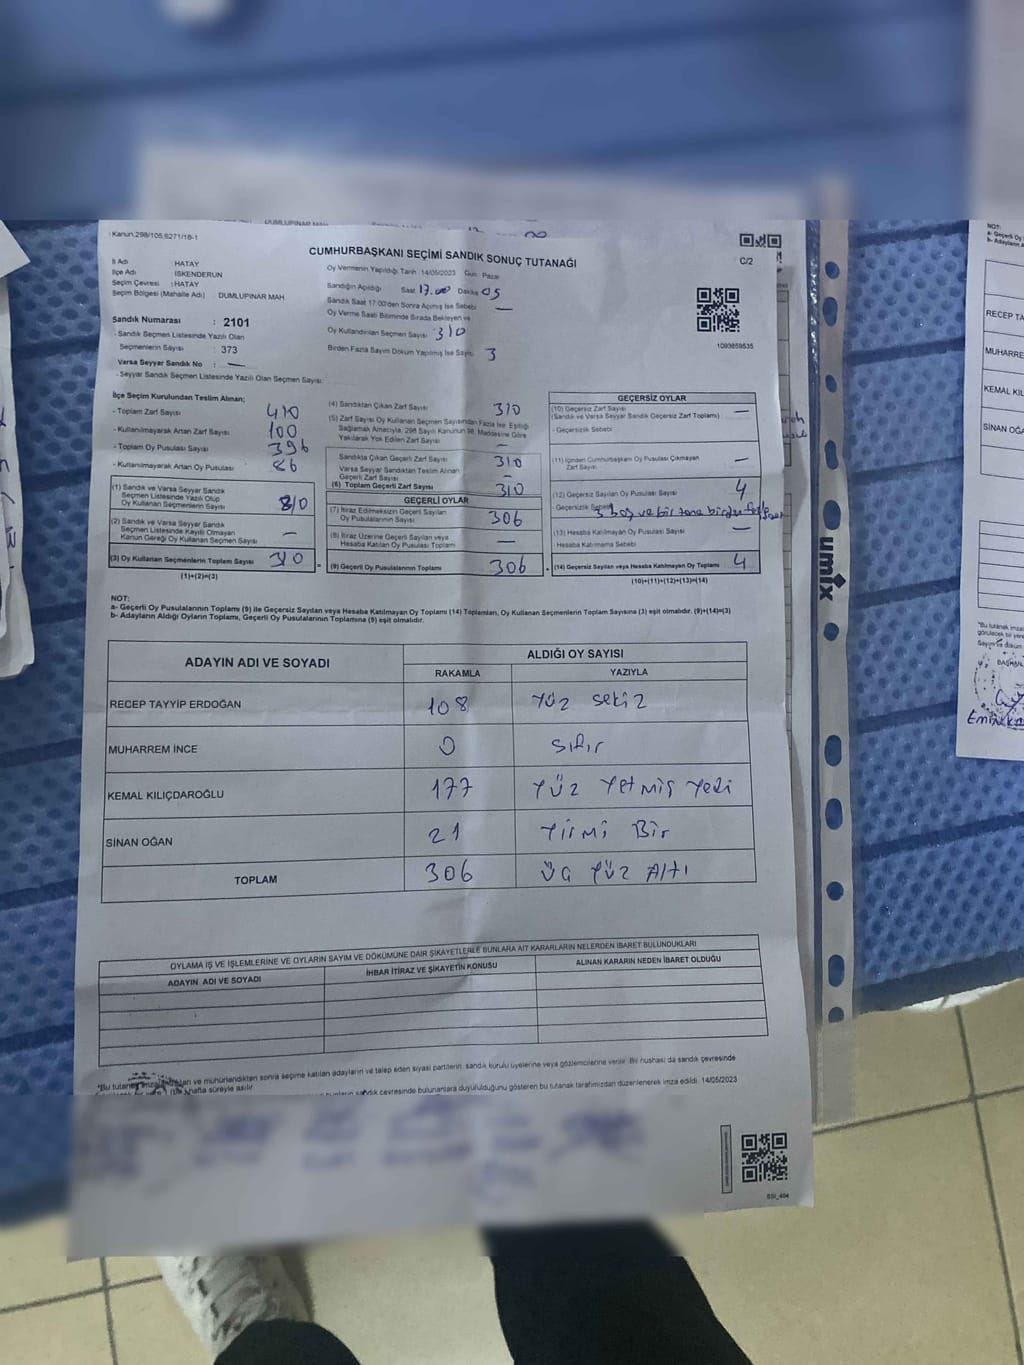 DUMLUPINAR MAH
Kanun.298/105,6271/18-1
CUMHURBAŞKANI SEÇİMİ SANDIK SONUÇ TUTANAĞI
C/2
İl Adı : HATAY
İlçe Adı : İSKENDERUN
Seçim Çevresi : HATAY
Seçim Bölgesi (Mahalle Adı) : DUMLUPINAR MAH
Sandık Numarası : 2101
- Sandık Seçmen Listesinde Yazılı Olan
Seçmenlerin Sayısı : 373
Varsa Seyyar Sandık No : —
- Seyyar Sandık Seçmen Listesinde Yazılı Olan Seçmen Sayısı:
Oy Vermenin Yapıldığı Tarih :14/05/2023 Gün : Pazar
Sandığın Açıldığı Saat 17.00 Dakika 05
Sandık Saat 17:00'den Sonra Açılmış İse Sebebi —
Oy Verme Saati Bitiminde Sırada Bekleyen ve
Oy Kullandırılan Seçmen Sayısı 310
Birden Fazla Sayım Döküm Yapılmış İse Sayısı 3
1093859535
İlçe Seçim Kurulundan Teslim Alınan;
- Toplam Zarf Sayısı 410
- Kullanılmayarak Artan Zarf Sayısı 100
- Toplam Oy Pusulası Sayısı 396
- Kullanılmayarak Artan Oy Pusulası 86
(1) Sandık ve Varsa Seyyar Sandık
Seçmen Listesinde Yazılı Olup
Oy Kullanan Seçmenlerin Sayısı 310
(2) Sandık ve Varsa Seyyar Sandık
Seçmen Listesinde Kayıtlı Olmayan
Kanun Gereği Oy Kullanan Seçmen Sayısı —
(3) Oy Kullanan Seçmenlerin Toplam Sayısı 310
(1)+(2)=(3)
(4) Sandıktan Çıkan Zarf Sayısı 310
(5) Zarf Sayısı Oy Kullanan Seçmen Sayısından Fazla İse, Eşitliği
Sağlamak Amacıyla, 298 Sayılı Kanunun 98. Maddesine Göre
Yakılarak Yok Edilen Zarf Sayısı —
Sandıkta Çıkan Geçerli Zarf Sayısı 310
Varsa Seyyar Sandıktan Teslim Alınan
Geçerli Zarf Sayısı —
(6) Toplam Geçerli Zarf Sayısı 310
GEÇERLİ OYLAR
(7) İtiraz Edilmeksizin Geçerli Sayılan
Oy Pusulalarının Sayısı 306
(8) İtiraz Üzerine Geçerli Sayılan veya
Hesaba Katılan Oy Pusulası Toplamı —
(9) Geçerli Oy Pusulalarının Toplamı 306
GEÇERSİZ OYLAR
(10) Geçersiz Zarf Sayısı —
(Sandık ve Varsa Seyyar Sandık Geçersiz Zarf Toplamı)
- Geçersizlik Sebebi
(11) İçinden Cumhurbaşkanı Oy Pusulası Çıkmayan
Zarf Sayısı —
(12) Geçersiz Sayılan Oy Pusulası Sayısı 4
- Geçersizlik Sebebi 3 boş ve bir tane birden fazla
(13) Hesaba Katılmayan Oy Pusulası Sayısı —
Hesaba Katılmama Sebebi
(14) Geçersiz Sayılan veya Hesaba Katılmayan Oy Toplamı 4
(10)+(11)+(12)+(13)=(14)
NOT:
a- Geçerli Oy Pusulalarının Toplamı (9) ile Geçersiz Sayılan veya Hesaba Katılmayan Oy Toplamı (14) Toplamları, Oy Kullanan Seçmenlerin Toplam Sayısına (3) eşit olmalıdır. (9)+(14)=(3)
b- Adayların Aldığı Oyların Toplamı, Geçerli Oy Pusulalarının Toplamına (9) eşit olmalıdır.
ADAYIN ADI VE SOYADI ALDIĞI OY SAYISI
RAKAMLA YAZIYLA
RECEP TAYYİP ERDOĞAN 108 Yüz Sekiz
MUHARREM İNCE 0 Sıfır
KEMAL KILIÇDAROĞLU 177 Yüz Yetmiş Yedi
SİNAN OĞAN 21 Yirmi Bir
TOPLAM 306 Üç Yüz Altı
OYLAMA İŞ VE İŞLEMLERİNE VE OYLARIN SAYIM VE DÖKÜMÜNE DAİR ŞİKAYETLERLE BUNLARA AİT KARARLARIN NELERDEN İBARET BULUNDUKLARI
ADAYIN ADI VE SOYADI İHBAR İTİRAZ VE ŞİKAYETİN KONUSU ALINAN KARARIN NEDEN İBARET OLDUĞU
*Bu tutanak ve mühürlendikten sonra seçime katılan adayların ve talep eden siyasi partilerin, sandık kurulu üyelerine veya gözlemcilerine verilir. Bir nushası da sandık çevresinde
hafta süreyle asılır.
sandık çevresinde bulunanlara duyulduğunu gösteren bu tutanak tarafımızdan düzenlenerek imza edildi. 14/05/2023
SSI_404
umix
NOT:
a- Geçerli Oy
b- Adayların
RECEP TA
MUHARRE
KEMAL KIL
SİNAN OĞA
*Bu tutanak imza
BAŞKAN